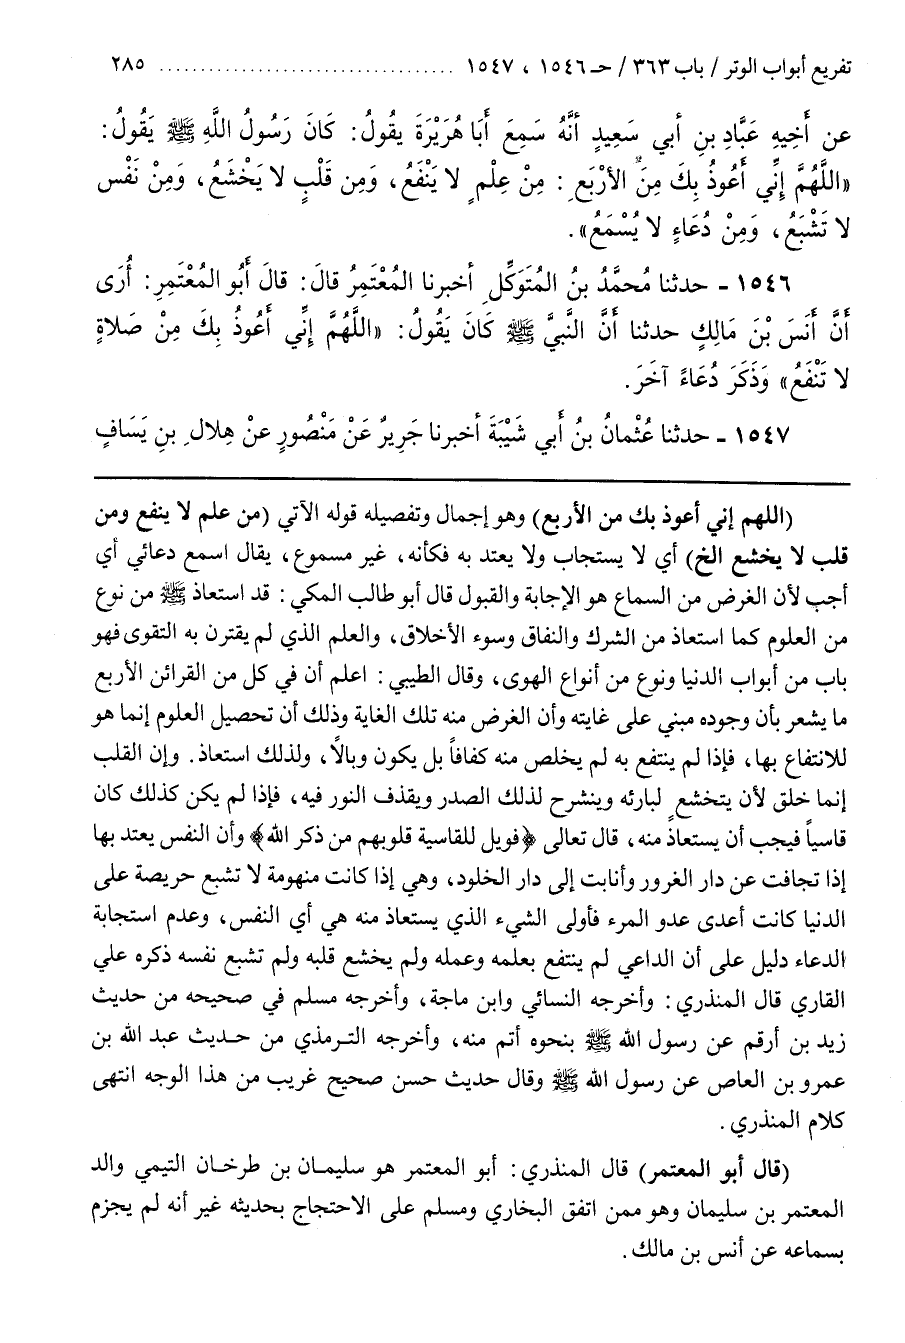 تفريع أبواب الوتر / باب ٣٦٣ / حـ ١٥٤٦ ، ١٥٤٧ ................................. ٢٨٥
عن أَخِيهِ عَبَّادِ بنِ أبي سَعِيدٍ أنَّهُ سَمِعَ أبَا هُرَيْرَةَ يقُولُ: كَانَ رَسُولُ اللَّهِ ﷺ يَقُولُ:
«اللَّهُمَّ إنِّي أَعُوذُ بِكَ مِنَ الأرْبَعِ: مِنْ عِلْمٍ لا يَنْفَعُ، وَمِن قَلْبٍ لا يَخْشَعُ، وَمِنْ نَفْسٍ
لا تَشْبَعُ، وَمِنْ دُعَاءٍ لا يُسْمَعُ».
١٥٤٦ - حدثنا مُحمَّدُ بنُ المُتَوَكِّلِ أخبرنا المُعْتَمِرُ قالَ: قالَ أَبُو المُعْتَمِرِ: أُرَى
أَنَّ أَنَسَ بْنَ مَالِكٍ حدثنا أَنَّ النَّبيَّ ﷺ كَانَ يَقُولُ: «اللَّهُمَّ إنِّي أَعُوذُ بِكَ مِنْ صَلاةٍ
لا تَنْفَعُ» وَذَكَرَ دُعَاءً آخَرَ.
١٥٤٧ - حدثنا عُثْمانُ بنُ أَبي شَيْبَةَ أخبرنا جَرِيرٌ عَنْ مَنْصُورٍ عنْ هِلالِ بنِ يَسَافٍ
(اللهم إني أعوذ بك من الأربع) وهو إجمال وتفصيله قوله الآتي (من علم لا ينفع ومن
قلب لا يخشع الخ) أي لا يستجاب ولا يعتد به فكأنه، غير مسموع، يقال اسمع دعائي أي
أجب لأن الغرض من السماع هو الإجابة والقبول قال أبو طالب المكي: قد استعاذ ﷺ من نوع
من العلوم كما استعاذ من الشرك والنفاق وسوء الأخلاق، والعلم الذي لم يقترن به التقوى فهو
باب من أبواب الدنيا ونوع من أنواع الهوى، وقال الطيبي: اعلم أن في كل من القرائن الأربع
ما يشعر بأن وجوده مبني على غايته وأن الغرض منه تلك الغاية وذلك أن تحصيل العلوم إنما هو
للانتفاع بها، فإذا لم ينتفع به لم يخلص منه كفافاً بل يكون وبالاً، ولذلك استعاذ. وإن القلب
إنما خلق لأن يتخشع لبارئه وينشرح لذلك الصدر ويقذف النور فيه، فإذا لم يكن كذلك كان
قاسياً فيجب أن يستعاذ منه، قال تعالى ﴿فويل للقاسية قلوبهم من ذكر الله﴾ وأن النفس يعتد بها
إذا تجافت عن دار الغرور وأنابت إلى دار الخلود، وهي إذا كانت منهومة لا تشبع حريصة على
الدنيا كانت أعدى عدو المرء فأولى الشيء الذي يستعاذ منه هي أي النفس، وعدم استجابة
الدعاء دليل على أن الداعي لم ينتفع بعلمه وعمله ولم يخشع قلبه ولم تشبع نفسه ذكره علي
القاري قال المنذري: وأخرجه النسائي وابن ماجة، وأخرجه مسلم في صحيحه من حديث
زيد بن أرقم عن رسول الله ﷺ بنحوه أتم منه، وأخرجه الترمذي من حديث عبد الله بن
عمرو بن العاص عن رسول الله ﷺ وقال حديث حسن صحيح غريب من هذا الوجه انتهى
كلام المنذري.
(قال أبو المعتمر) قال المنذري: أبو المعتمر هو سليمان بن طرخان التيمي والد
المعتمر بن سليمان وهو ممن اتفق البخاري ومسلم على الاحتجاج بحديثه غير أنه لم يجزم
بسماعه عن أنس بن مالك.